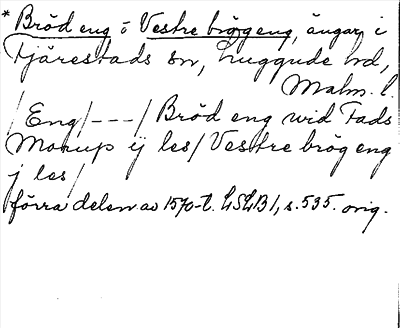 * Bröd eng o Vestre brög eng, ängar, i
Tjärestads sn, Luggude hd,
Malm. l.
/Eng/---/Bröd eng wid Fads
Morup ij les/Vestre brög eng
j les/
förra delen av 1570-t. LSLB1, s. 535. orig.